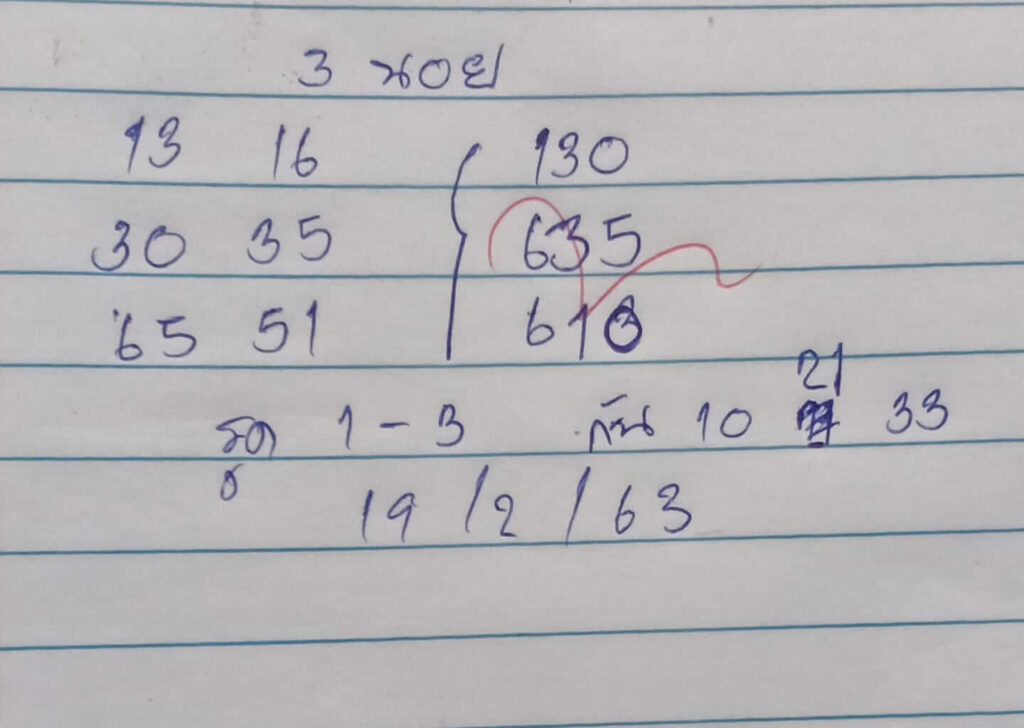 3 นอย
13 16 130
30 35 635
65 51 613
21
รูด 1 - 3 กัน 10 33
19 / 2 / 63